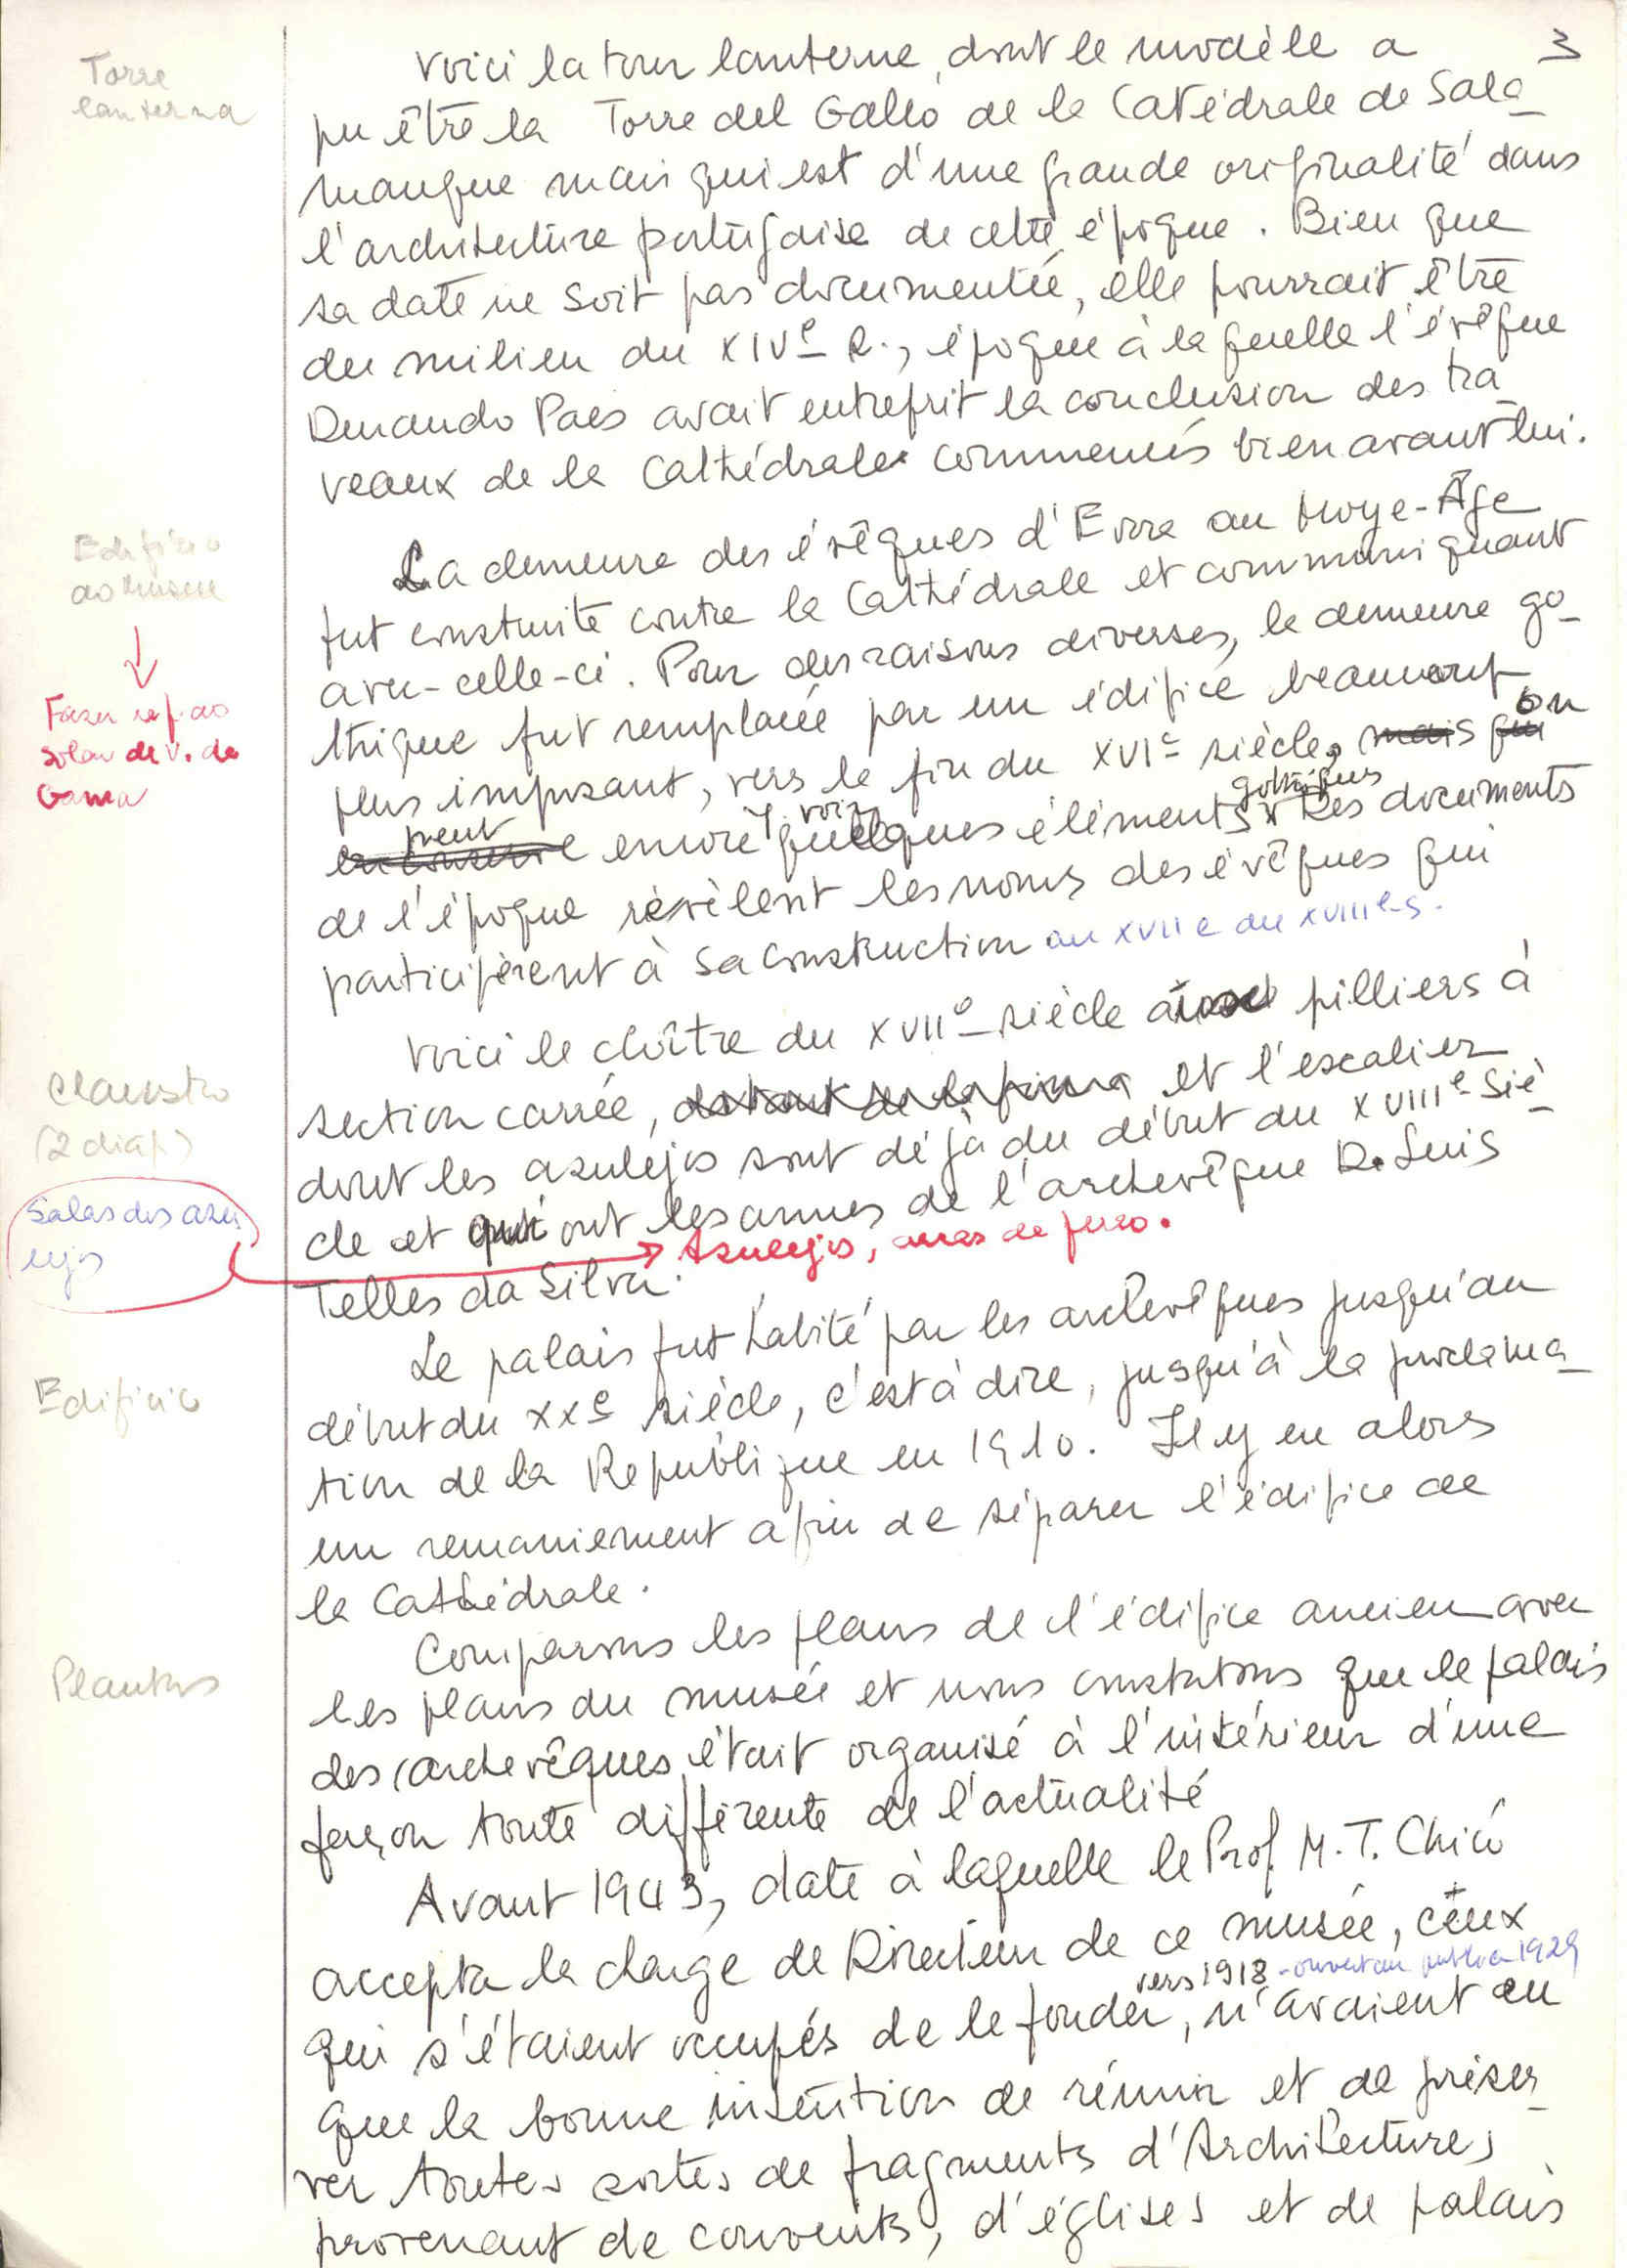 3
Torre
lanterna
Voici la tour lanterne, dont le modèle a
pu être la Torre del Gallo de la Catédrale de Sala-
manque mais qui est d'une grande originalité dans
l'architecture portugaise de cette époque. Bien que
sa date ne soit pas documentée, elle pourrait être
du milieu du XIVe s., époque à laquelle l'évêque
Durando Pais avait entreprit la conclusion des tra-
veaux de la Cathédrale commencés bien avant lui.
Edifício
do Museu
Fazer ref. ao
solar de V. da
Gama
La demeure des évêques d'Evora au Moye-Âge
fut construite contre la Cathédrale et communiquant
avec-celle-ci. Pour des raisons diverses, la demeure go-
thique fut remplacée par un édifice beaucoup
plus imposant, vers la fin du XVIe siècle, mais qui on
en conserve peut encore y voir quelques éléments gothiques. Des documents
de l'époque révèlent les noms des évêques qui
participèrent à sa construction au XVIIe au XVIIIe s.
Claustro
(2 diap.)
Voici le cloître du XVIIe siècle à pilliers à
section carrée, et l'escalier
dont les azulejos sont déjà du début du XVIIIe siè-
cle et qui ont les armes de l'archevêque D. Luis
Telles da Silva.
Salas dos azu
lejos
Azulejos, arcas de ferro.
Edifício
Le palais fut habité par les archevêques jusqu'au
début du XXe siècle, c'est à dire, jusqu'à la proclama-
tion de la Republique en 1910. Il y eu alors
un remaniement afin de séparer l'édifice de
la Cathédrale.
Plantas
Comparons les plans de l'édifice ancien avec
les plans du musée et nous constatons que le palais
des archevêques était organisé à l'intérieur d'une
façon toute différente de l'actualité
Avant 1943, date à laquelle le Prof. M. T. Chicó
accepta la charge de Directeur de ce musée, ceux
vers 1918 - ouvert au public en 1929
qui s'étaient occupés de le fonder, n'avaient eu
que la bonne intention de réunir et de préser-
ver toutes sortes de fragments d'Architectures
provenant de couvents, d'églises et de palais